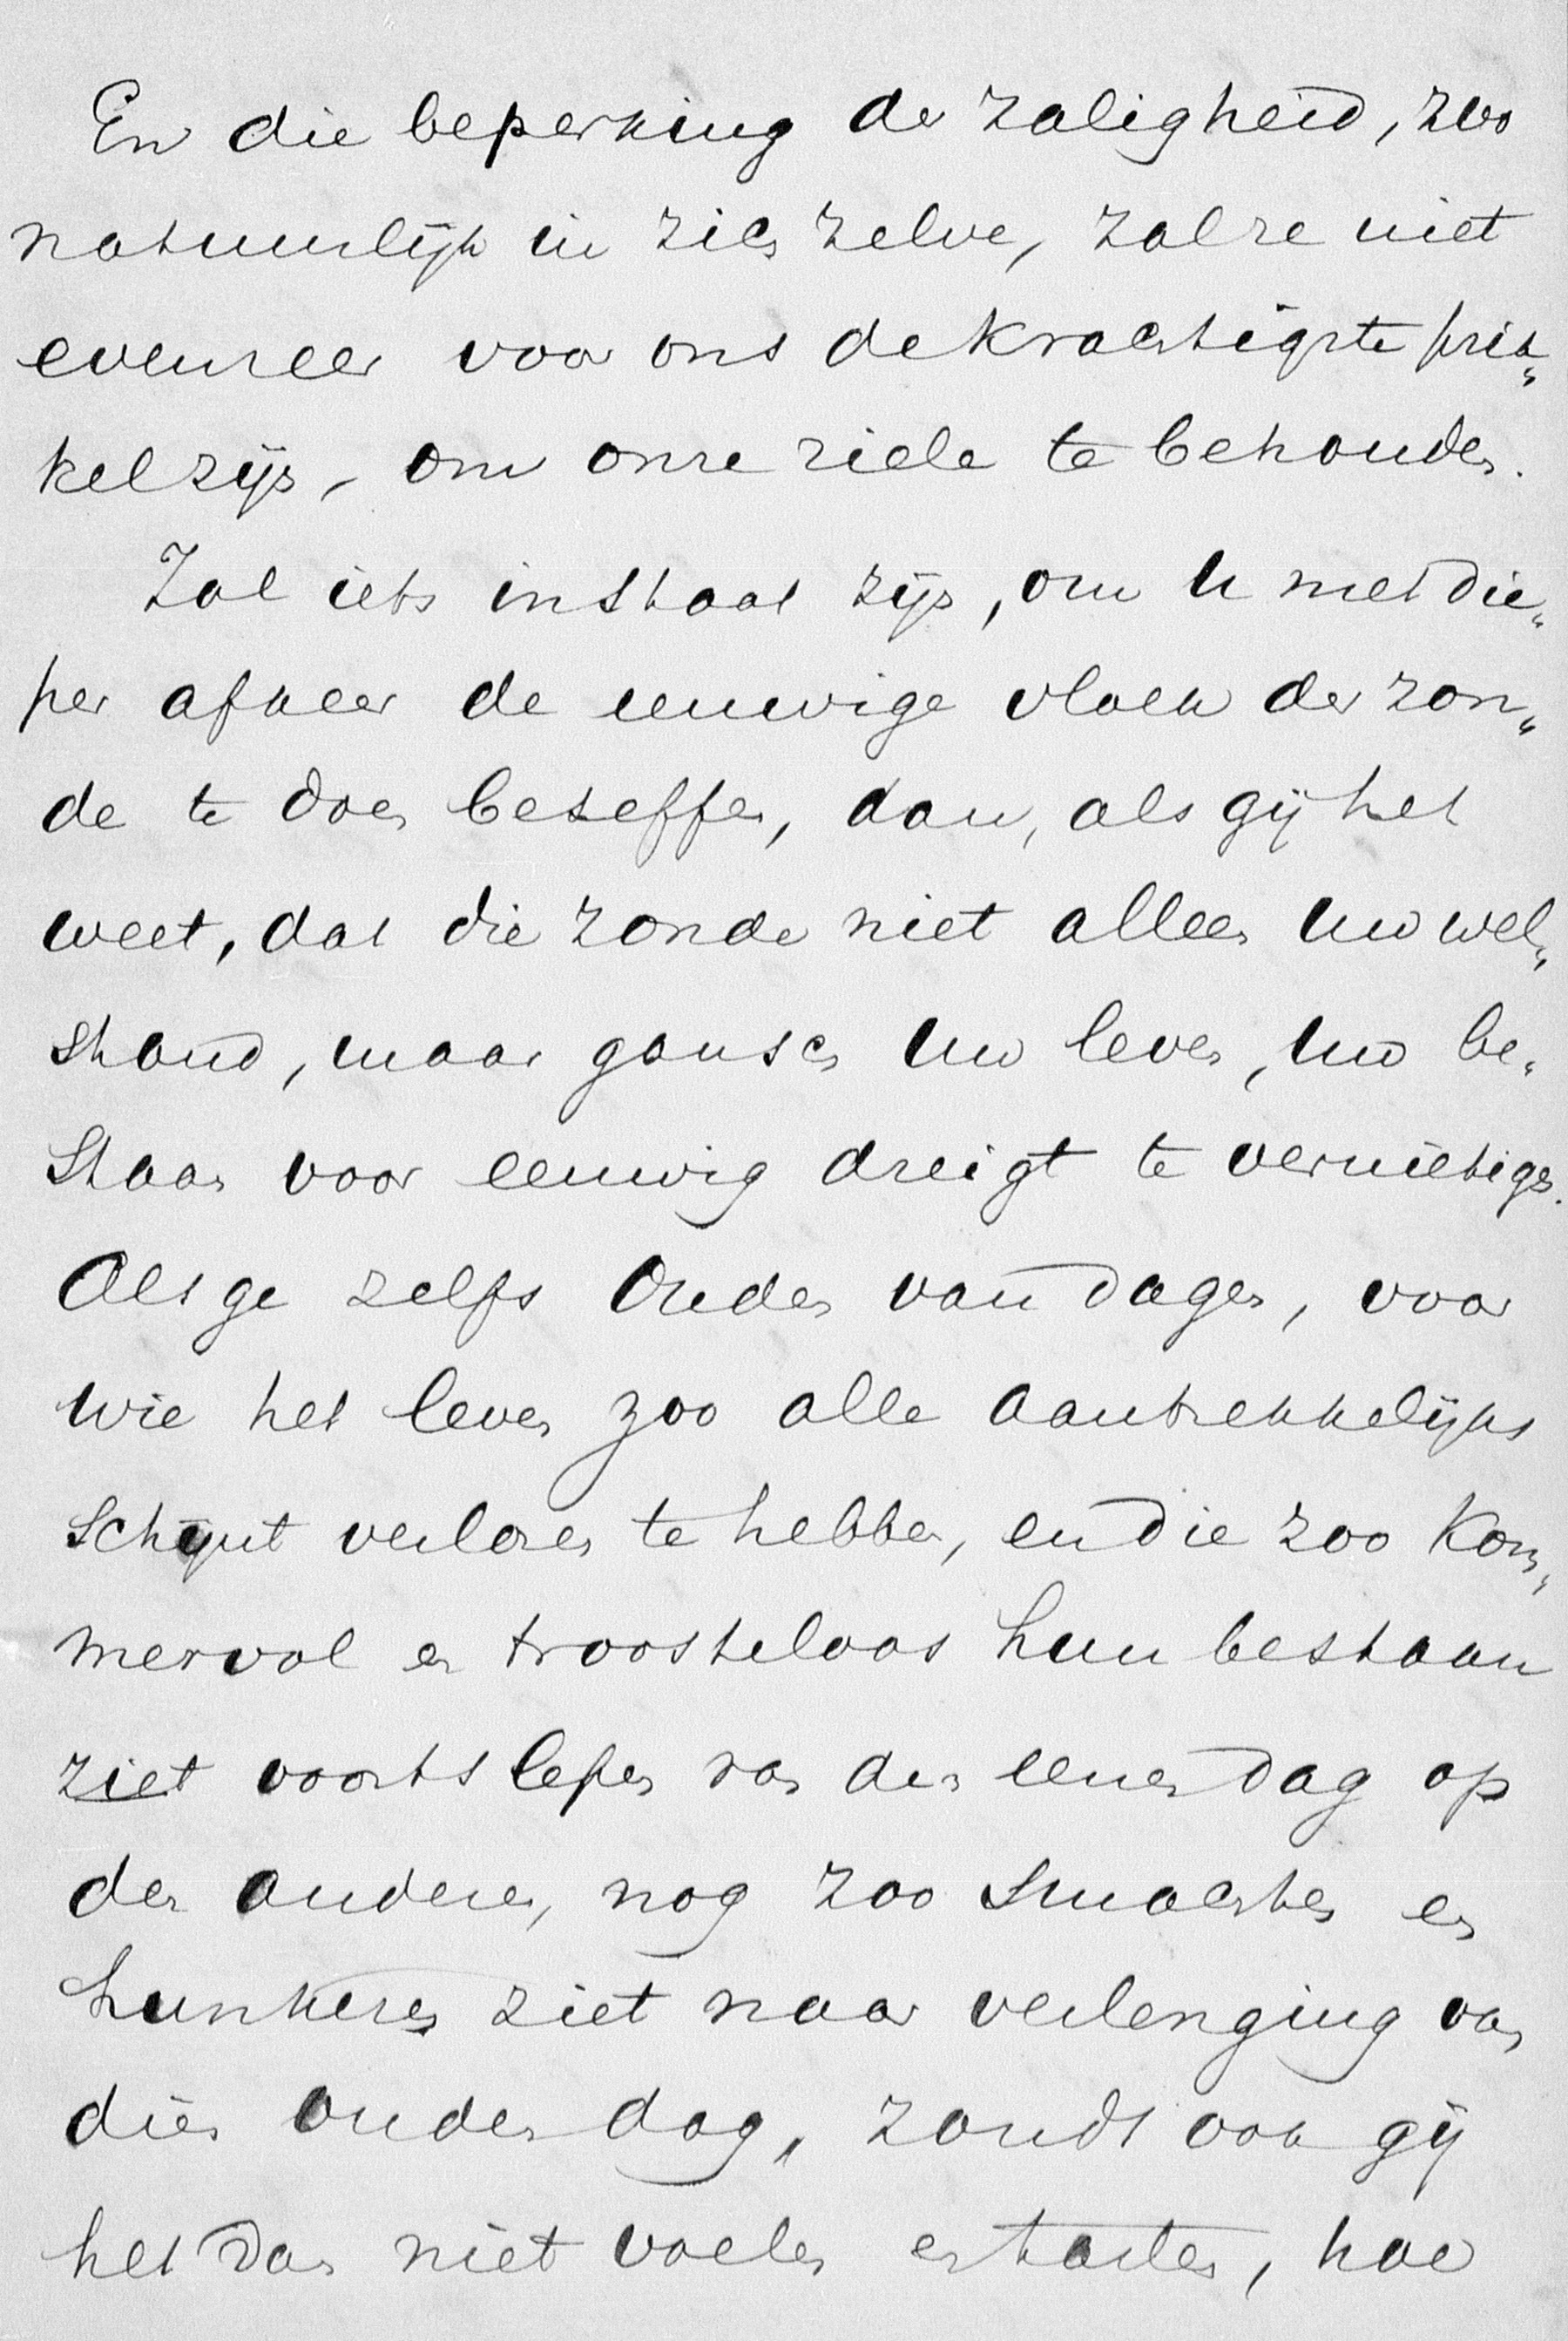 En die beperking der zaligheid, zoo
natuurlijk in zich zelve, zal ze niet
evenzeer voor ons de krachtigste prik„
kel zijn, om onze ziele te behouden.
Zal iets in staat zijn, om U met die„
per afkeer de eeuwige vloek der zon„
de te doen beseffen, dan, als gij het
weet, dat die zonde niet alleen Uw wel„
stand, maar gansch Uw leven, Uw be„
staan voor eeuwig dreigt te vernietigen.
Als ge zelfs Ouden van dagen, voor
wie het leven zoo alle aantrekkelijks
schijnt verloren te hebben, en die zoo kom„
mervol en troosteloos hun bestaan
ziet voortslepen van den eenen dag op
den anderen, nog zoo smachten en
hunkeren ziet naar verlenging van
dien ouden dag, zoudt ook gij
het dan niet voelen en tasten, hoe